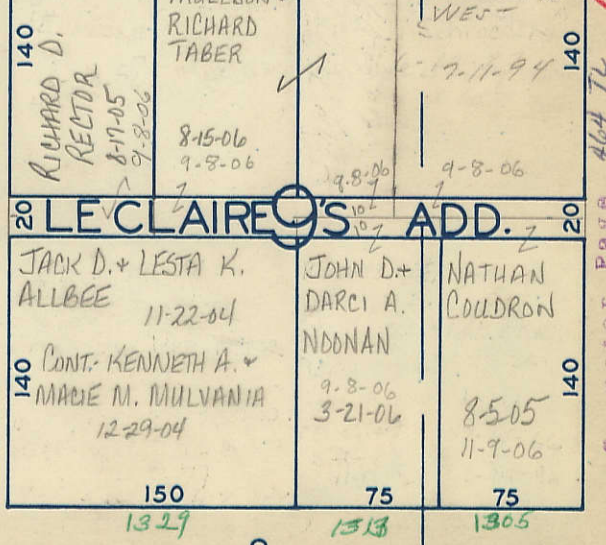 RICHARD
TABER
WEST
7-11-94
140
140
RICHARD D.
RECTOR
8-17-05
9-8-06
8-15-06
9-8-06
9-8-06
9-8-06
20
LE CLAIRE 9'S ADD.
10
10
20
JACK D. + LESTA K.
ALLBEE
11-22-04
CONT:- KENNETH A. +
MACIE M. MULVANIA
12-29-04
140
JOHN D. +
DARCI A.
NOONAN
9-8-06
3-21-06
NATHAN
COUDRON
8-5-05
11-9-06
140
150
75
75
1329
1313
1305